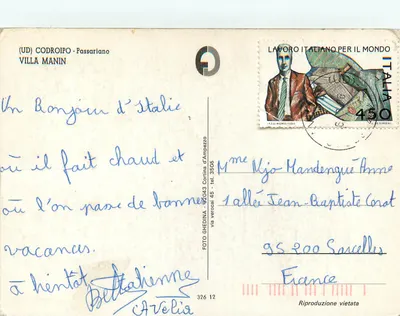 (UD) CODROIPO - Passariano
VILLA MANIN
Un Bonjour d'Italie
où il fait chaud et
où l'on passe de bonnes
vacances.
à bientôt,
CAVelia
326 12
FOTO GHEDINA - 32043 Cortina d'Ampezzo
via verocai 45 - tel. 2508
LAVORO ITALIANO PER IL MONDO
ITALIA
450
Mme Njo-Mandengué Anne
1 allée Jean-Baptiste Corot
95200 Sarcelles
France
Riproduzione vietata